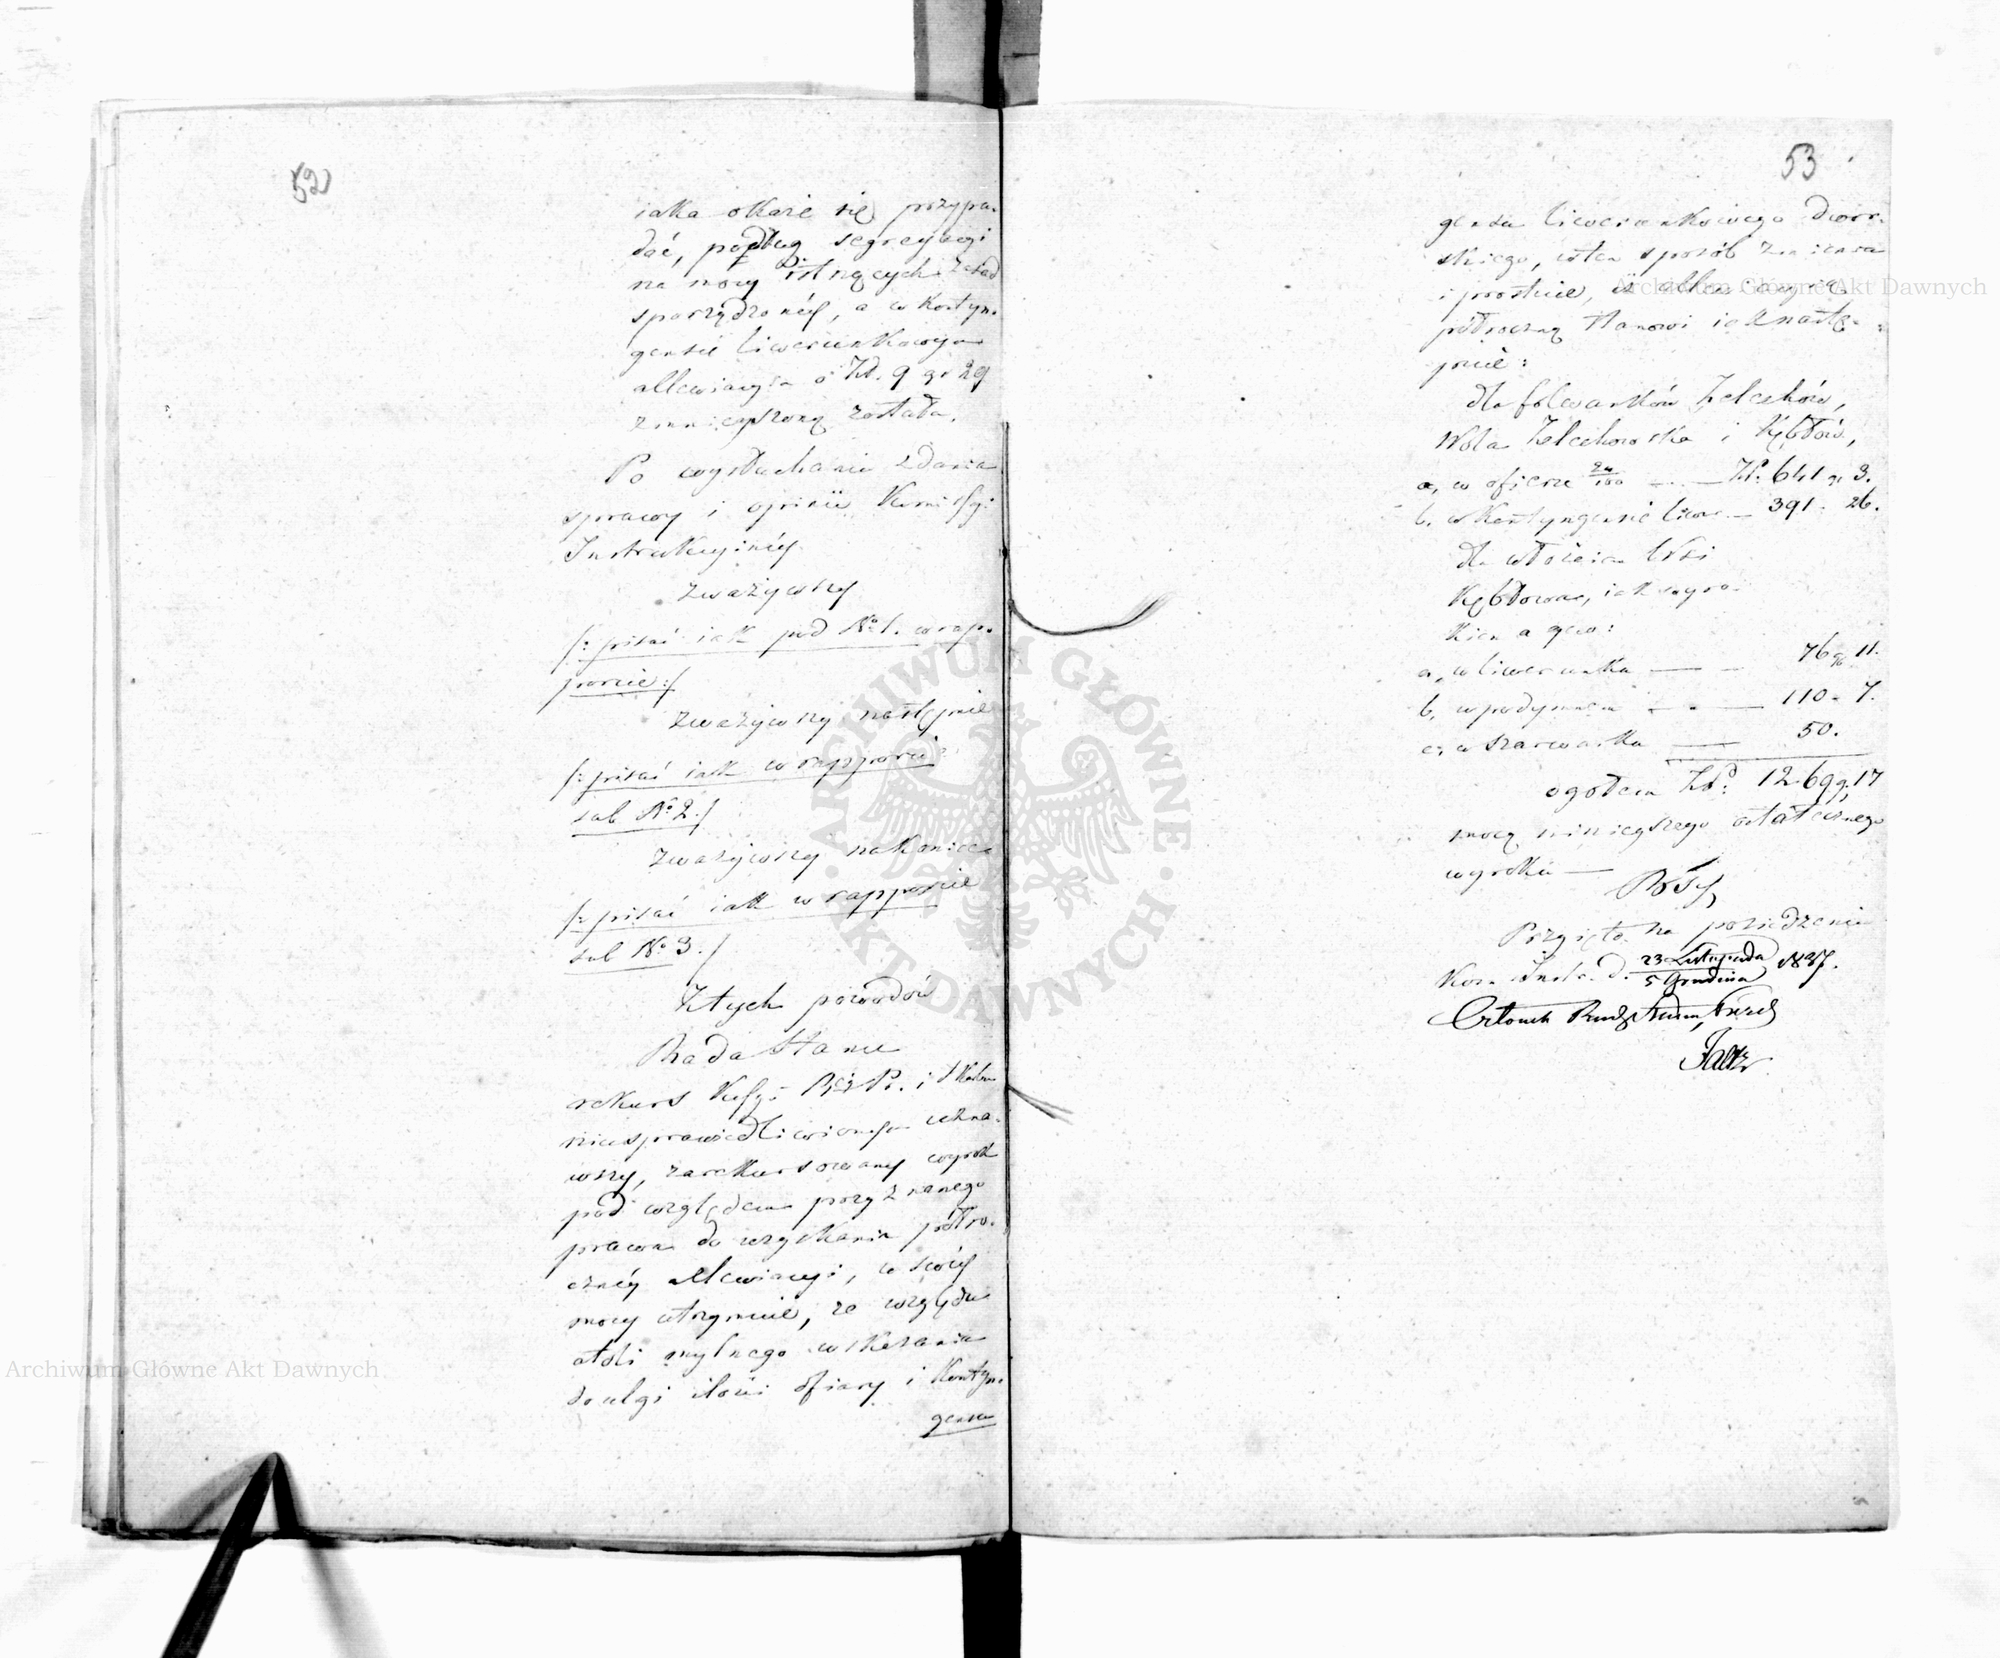 52
iaka okaże się przypa-
dać, podług segregacyi
na mocy istnących zasad
sporządzonéy, a w kontyn-
gensie liwerunkowym
allewiacya o Zł. 9 gr 29
zmnieyszoną została.
Po wysłuchaniu zdania
sprawy i opinii Kommissyi
Instrukcyinéy
zważywszy
/: pisać iak pod No 1. w rap-
porcie :/
zważywszy następnie
/: pisać iak w rapporcie
sub No 2./
zważywszy nakoniec
/: pisać iak w rapporcie
sub No 3./
Z tych powodów
Rada Stanu
rekurs Kssyi Rz. Pr. i Skarbu
niesprawiedliwionym uzna-
wszy, zarekursowany wyrok
pod względem przyznanego
prawa do uzyskania półro-
cznéy allewiacyi, w swéy
mocy utrzymuie, ze względu
atoli mylnego wskazania
do ulgi ilości ofiary i Kontyn-
gensu
53
gensu liwerunkowego dwor-
skiego, w ten sposób zmienia
i prostuie, iż allewiacyią
półroczną stanowi iak nastę-
puie:
dla folwarków Żelechów,
Wola Żelechowska i Kębłów,
a, w ofierze 24/100 — Zł: 641 gr 3.
b. w Kontyngensie liwer. — 391. 26.
dla włościan Wsi
Kębłowa, iak wyro-
kiem
a, w liwerunku — 76 gr 11.
b, w podymnem — 110 - 7.
c, w szarwarku — 50.
ogółem Zł: 1269 gr 17
mocą ninieyszego ostatecznego
wyroku —
Przyięto na posiedzeniu
Kom. Instr. d. 23 Listopada / 5 Grudnia 1837.
Członek Rady Stanu,
Archiwum Główne Akt Dawnych
Archiwum Główne Akt Dawnych
ARCHIWUM GŁÓWNE · AKT DAWNYCH ·